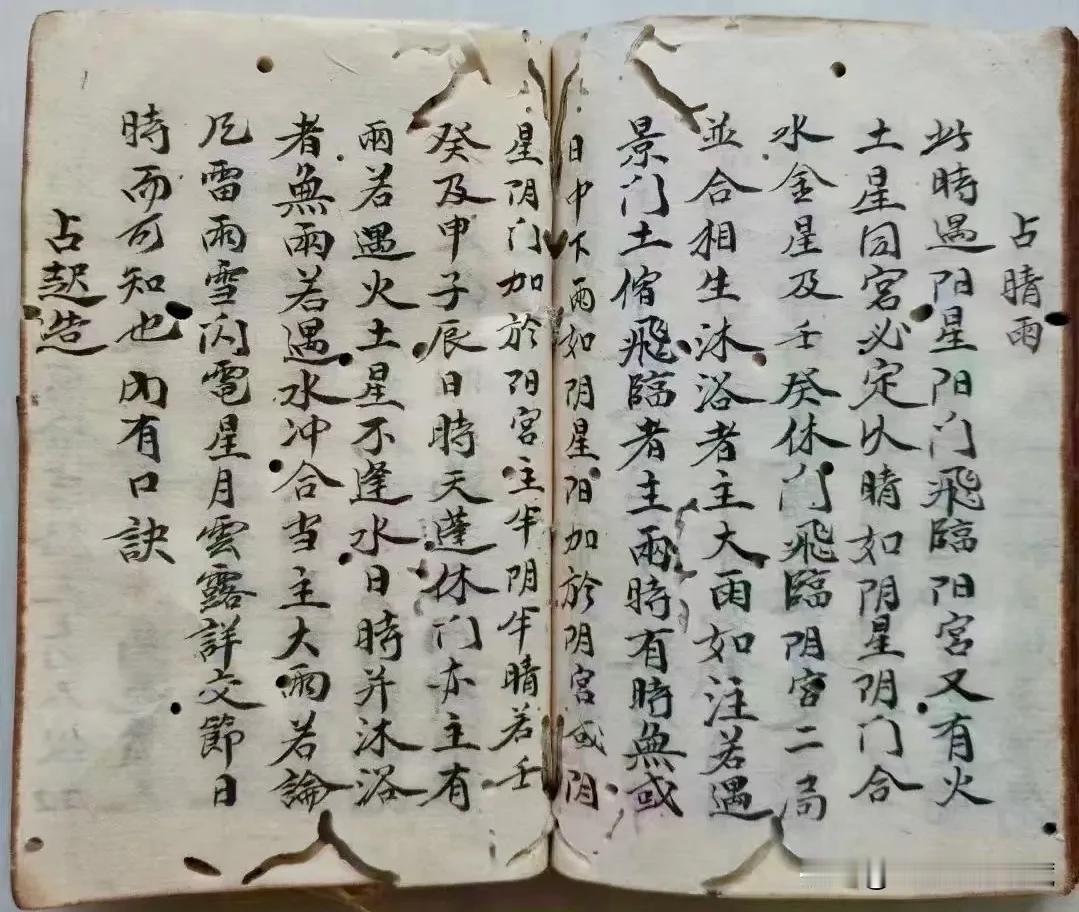 占晴雨
此時遇阳星阳门飛臨阳宮又有火
土星同宮必定以晴如阴星阴门合
水金星及壬癸休门飛臨阴宮二局
並合相生沐浴者主大雨如注若遇
景门土偹飛臨者主雨時有時無或
日中下雨如阴星阳加於阴宮或阴
星阴门加於阳宮主半阴半晴若壬
癸及申子辰日時天蓬休门亦主有
雨若遇火土星不逢水日時并沐浴
者無雨若遇水冲合当主大雨若論
凡雷雨雪闪電星月雲露詳交節日
時而可知也内有口訣
占起造